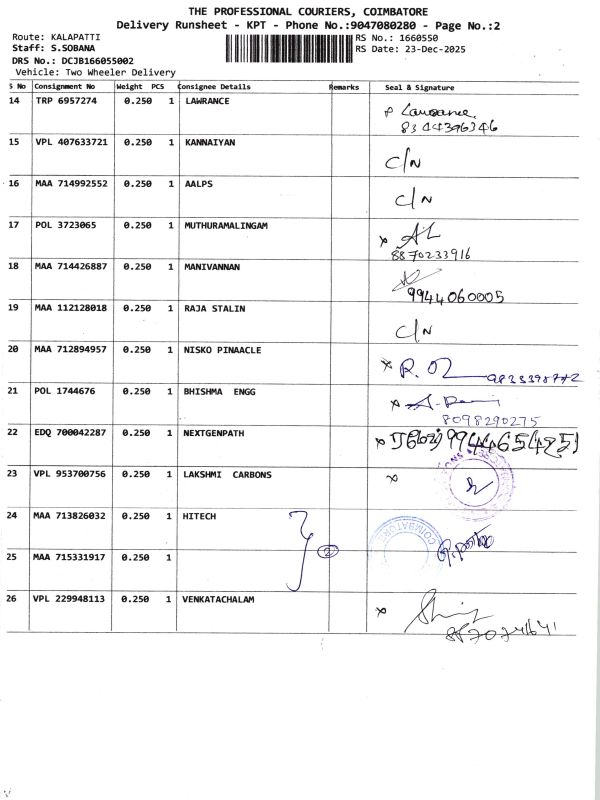 THE PROFESSIONAL COURIERS, COIMBATORE
Delivery Runsheet - KPT - Phone No.:9047080280 - Page No.:2
Route: KALAPATTI
Staff: S.SOBANA
DRS No.: DCJB166055002
Vehicle: Two Wheeler Delivery
RS No.: 1660550
RS Date: 23-Dec-2025
S No Consignment No Weight PCS Consignee Details Remarks Seal & Signature
14 TRP 6957274 0.250 1 LAWRANCE Lawrance
8344396346
15 VPL 407633721 0.250 1 KANNAIYAN C/N
16 MAA 714992552 0.250 1 AALPS C/N
17 POL 3723065 0.250 1 MUTHURAMALINGAM
8870233916
18 MAA 714426887 0.250 1 MANIVANNAN
9944060005
19 MAA 112128018 0.250 1 RAJA STALIN C/N
20 MAA 712894957 0.250 1 NISKO PINAACLE
21 POL 1744676 0.250 1 BHISHMA ENGG
8098290275
22 EDQ 700042287 0.250 1 NEXTGENPATH
23 VPL 953700756 0.250 1 LAKSHMI CARBONS
24 MAA 713826032 0.250 1 HITECH
2 COIMBATORE
25 MAA 715331917 0.250 1
26 VPL 229948113 0.250 1 VENKATACHALAM